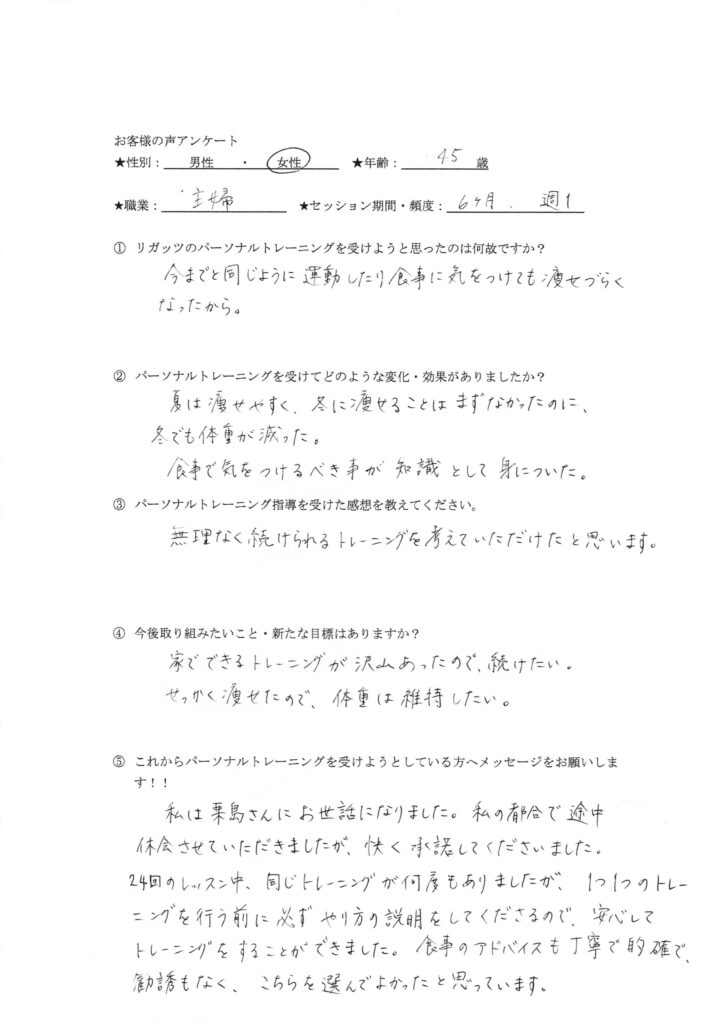 お客様の声アンケート
★性別： 男性 ・ 女性 ★年齢： 45 歳
★職業： 主婦 ★セッション期間・頻度： 6ヶ月、週1
① リガッツのパーソナルトレーニングを受けようと思ったのは何故ですか？
今までと同じように運動したり食事に気をつけても痩せづらく
なったから。
② パーソナルトレーニングを受けてどのような変化・効果がありましたか？
夏は痩せやすく、冬に痩せることはまずなかったのに、
冬でも体重が減った。
食事で気をつけるべき事が知識として身についた。
③ パーソナルトレーニング指導を受けた感想を教えてください。
無理なく続けられるトレーニングを考えていただけたと思います。
④ 今後取り組みたいこと・新たな目標はありますか？
家でできるトレーニングが沢山あったので、続けたい。
せっかく痩せたので、体重は維持したい。
⑤ これからパーソナルトレーニングを受けようとしている方へメッセージをお願いしま
す！！
私は栗島さんにお世話になりました。私の都合で途中
休会させていただきましたが、快く承諾してくださいました。
24回のレッスン中、同じトレーニングが何度もありましたが、1つ1つのトレー
ニングを行う前に必ずやり方の説明をしてくださるので、安心して
トレーニングをすることができました。食事のアドバイスも丁寧で的確で、
勧誘もなく、こちらを選んでよかったと思っています。